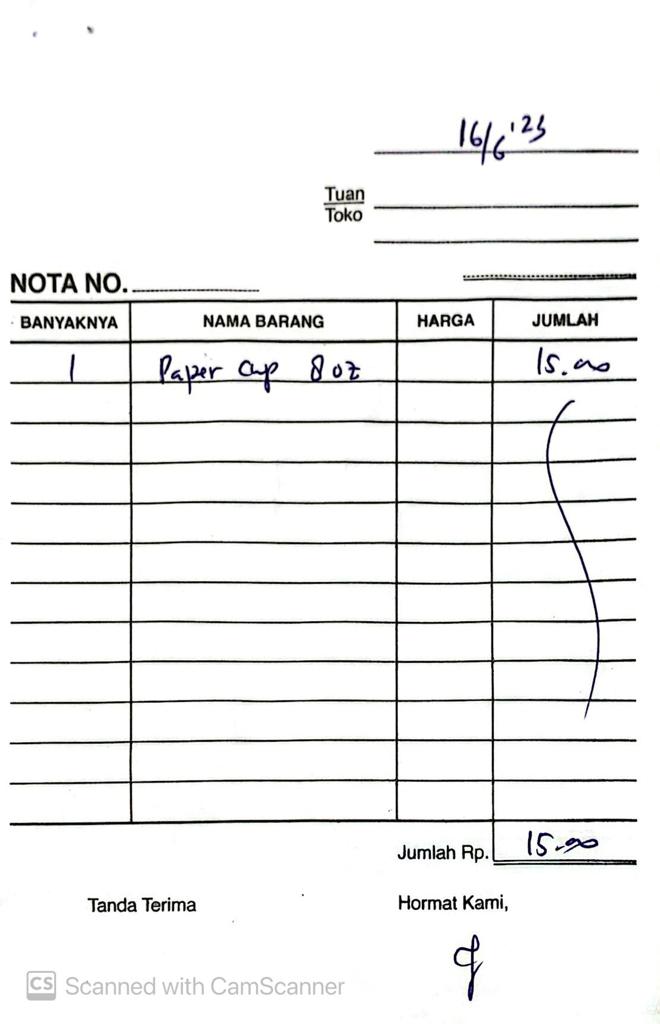 16/6 '23
Tuan
Toko
NOTA NO.
BANYAKNYA NAMA BARANG HARGA JUMLAH
1 Paper cup 8 oz 15.000
Jumlah Rp. 15.000
Tanda Terima Hormat Kami,
CS Scanned with CamScanner